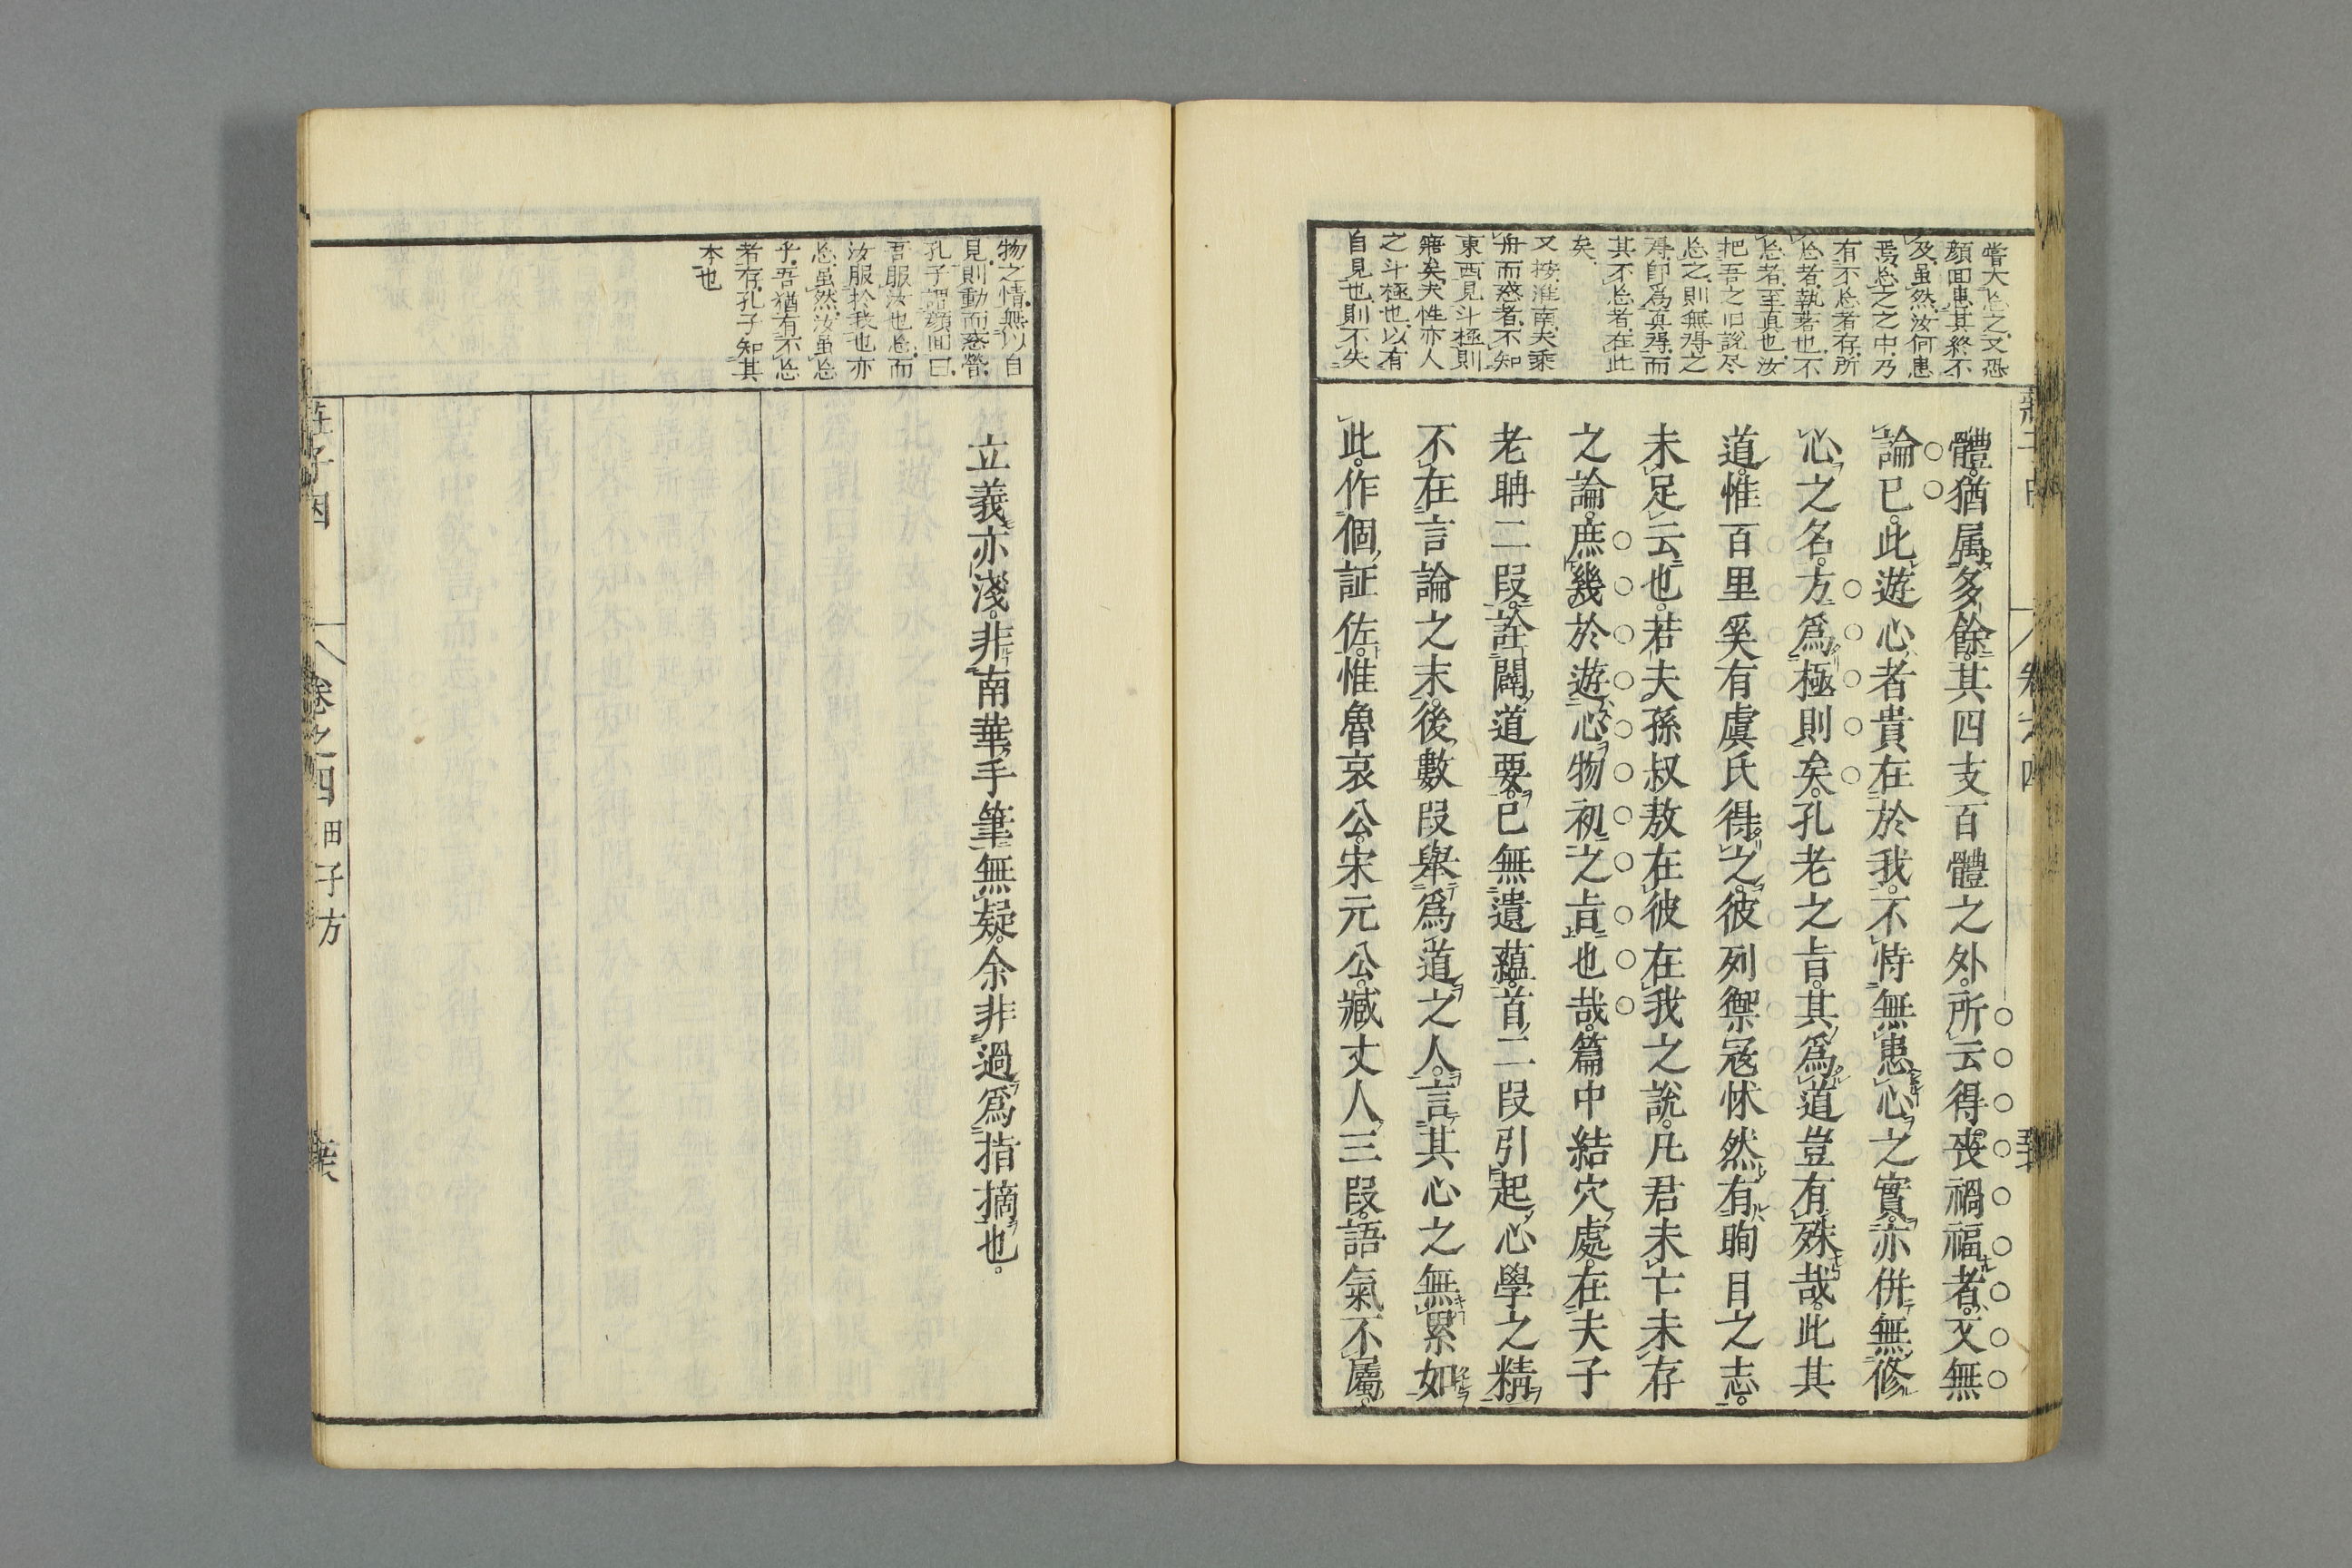 嘗大忘之又恐
顔回患其終不
及雖然汝何患
焉忘之之中乃
有不忘者存所
忘者執著也不
忘者至真也汝
把吾之旧說尽
忘之則無得之
得即爲真得而
其不忘者在此
矣
又按淮南夫乘
舟而惑者不知
東西見斗極則
寤矣夫性亦人
之斗極也以有
自見也則不失
體。猶属多餘。其四支百體之外。所云得。喪禍福者。又無
論已。此遊心者貴在於我。不恃無患心之實。亦併無修
心之名。方爲極則矣。孔老之旨。其爲道豈有殊哉。此其
道。惟百里奚有虞氏得之。彼列禦冦怵然有眴目之志。
未足云也。若夫孫叔敖在彼在我之說。凡君未亡未存
之論。庶幾於遊心物初之旨也哉。篇中結穴處。在夫子
老聃二段。詮闢道要。已無遺蘊。首二段引起心學之精。
不在言論之末。後數段舉爲道之人。言其心之無累如
此。作個証佐。惟魯哀公。宋元公。臧丈人。三段。語氣不屬。
物之情無以自
見則動而惑營
孔子謂顔回曰
吾服汝也忘而
汝服於我也亦
忘雖然汝雖忘
乎吾猶有不忘
者存孔子知其
本也
立義亦淺。非南華手筆無疑。余非過爲指摘也。
莊子因
卷之四 田子方